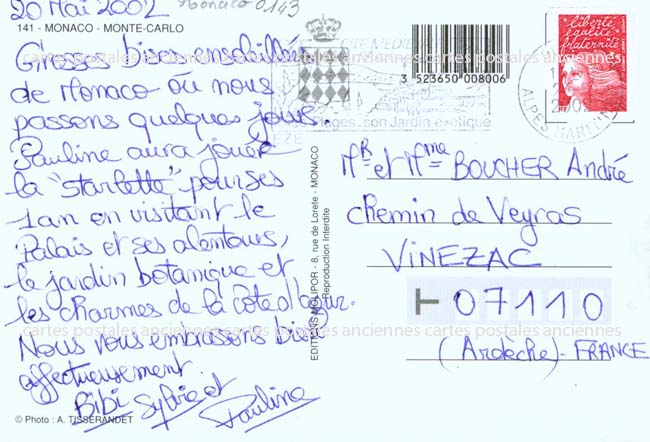 20 Mai 2002
Monaco 0143
141 - MONACO - MONTE-CARLO
Grosses bises ensoleillées
de Monaco où nous
passons quelques jours.
Pauline aura jouer
la "starlette" pour ses
1 an en visitant le
Palais et ses alentours,
le jardin botanique et
les charmes de la côte d'azur.
Nous vous embrassons bien
affectueusement.
Bibi Sylvie et
Pauline
© Photo : A. TISSERANDET
EDITIONS MOLIPOR - 8, rue de Lorete - MONACO
Reproduction Interdite
3 523650 008006
CITE MEDIEVALE
son Jardin exotique
EZE
liberté
égalité
fraternité
ALPES MARITIMES
Mr et Mme BOUCHER André
Chemin de Veyras
VINEZAC
07110
(Ardèche) - FRANCE
cartes postales anciennes cartes postales anciennes cartes postales anciennes
cartes postales anciennes cartes postales anciennes cartes postales anciennes